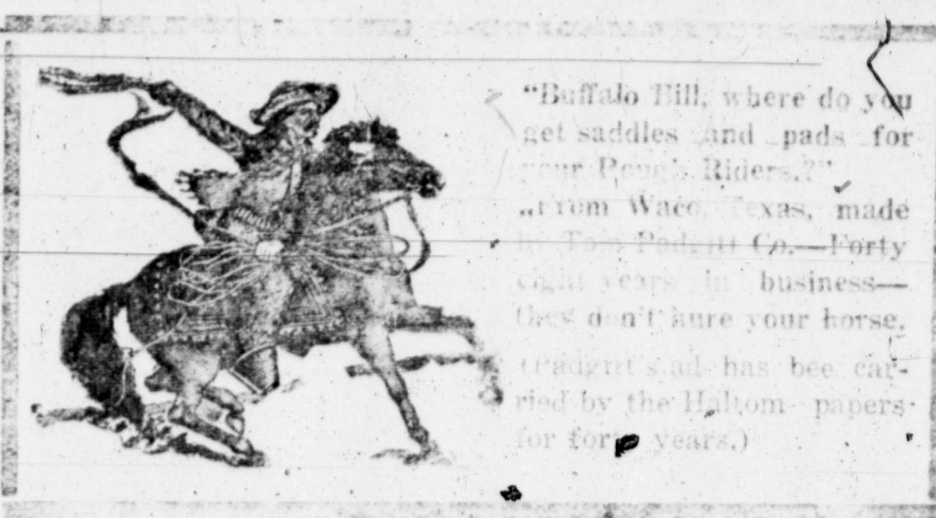 "Buffalo Bill, where do you
get saddles and pads for
your Rough Riders.?"
„From Waco, Texas, made
by Tom Padgitt Co.—Forty
eight years in business—
they don't hure your horse.
(Padgitt's ad has bee car-
ried by the Haltom papers
for forty years.)